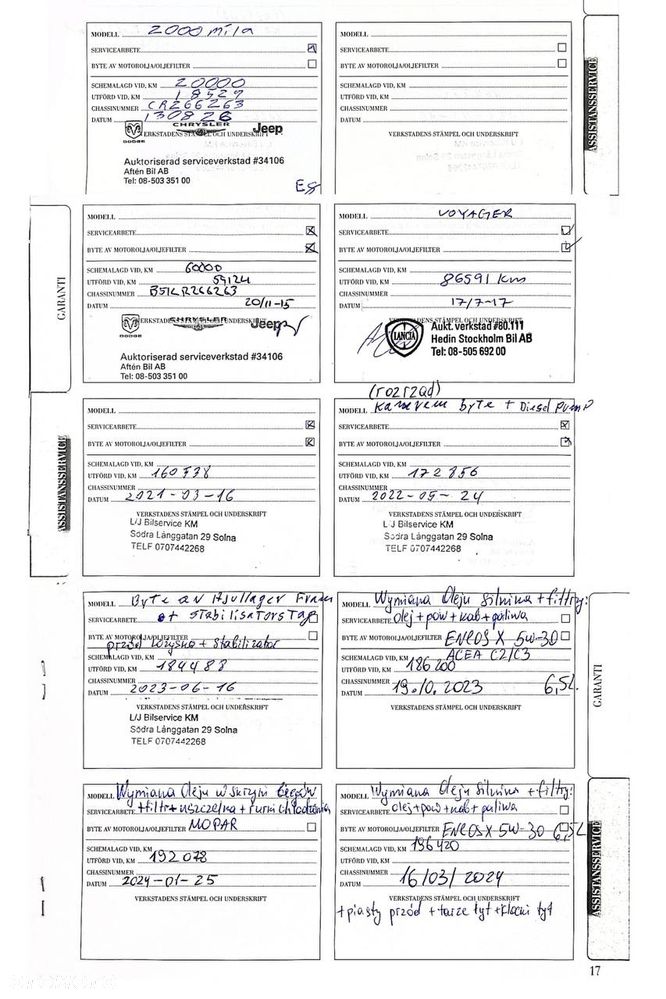 MODELL 2000 mila
SERVICEARBETE
BYTE AV MOTOROLJA/OLJEFILTER
SCHEMALAGD VID, KM 20000
UTFÖRD VID, KM 18529
CHASSINUMMER CR266263
DATUM 130826
VERKSTADENS STÄMPEL OCH UNDERSKRIFT
DODGE
CHRYSLER
Jeep
Auktoriserad serviceverkstad #34106
Aftén Bil AB
Tel: 08-503 351 00
MODELL
SERVICEARBETE
BYTE AV MOTOROLJA/OLJEFILTER
SCHEMALAGD VID, KM
UTFÖRD VID, KM
CHASSINUMMER
DATUM
VERKSTADENS STÄMPEL OCH UNDERSKRIFT
ASSISTANSSERVICE
GARANTI
MODELL
SERVICEARBETE
BYTE AV MOTOROLJA/OLJEFILTER
SCHEMALAGD VID, KM 60000
UTFÖRD VID, KM 59124
CHASSINUMMER
DATUM 20/11-15
VERKSTADENS STÄMPEL OCH UNDERSKRIFT
DODGE
CHRYSLER
Jeep
Auktoriserad serviceverkstad #34106
Aftén Bil AB
Tel: 08-503 351 00
MODELL VOYAGER
SERVICEARBETE
BYTE AV MOTOROLJA/OLJEFILTER
SCHEMALAGD VID, KM
UTFÖRD VID, KM 86591 km
CHASSINUMMER
DATUM 17/7-17
VERKSTADENS STÄMPEL OCH UNDERSKRIFT
LANCIA
Aukt. verkstad #80.111
Hedin Stockholm Bil AB
Tel: 08-505 692 00
MODELL
SERVICEARBETE
BYTE AV MOTOROLJA/OLJEFILTER
SCHEMALAGD VID, KM
UTFÖRD VID, KM 160738
CHASSINUMMER
DATUM 2021-03-16
VERKSTADENS STÄMPEL OCH UNDERSKRIFT
L/J Bilservice KM
Södra Långgatan 29 Solna
TELF 0707442268
ASSISTANSSERVICE
(rozrząd)
MODELL Kamrem byte + Diesel pump
SERVICEARBETE
BYTE AV MOTOROLJA/OLJEFILTER
SCHEMALAGD VID, KM
UTFÖRD VID, KM 172856
CHASSINUMMER
DATUM 2022-05-24
VERKSTADENS STÄMPEL OCH UNDERSKRIFT
L/J Bilservice KM
Södra Långgatan 29 Solna
TELF 0707442268
MODELL Byte av Hjullager Fram
SERVICEARBETE et stabilisatorstag
BYTE AV MOTOROLJA/OLJEFILTER
przód łożyska + stabilizator
SCHEMALAGD VID, KM
UTFÖRD VID, KM 184488
CHASSINUMMER
DATUM 2023-06-16
VERKSTADENS STÄMPEL OCH UNDERSKRIFT
L/J Bilservice KM
Södra Långgatan 29 Solna
TELF 0707442268
MODELL Wymiana Oleju silnika + filtry:
SERVICEARBETE olej+pow+kab+paliwa
BYTE AV MOTOROLJA/OLJEFILTER ENEOS X 5W-30
SCHEMALAGD VID, KM ACEA C2/C3
UTFÖRD VID, KM 186200
CHASSINUMMER
DATUM 19.10.2023 6,5L
VERKSTADENS STÄMPEL OCH UNDERSKRIFT
GARANTI
MODELL Wymiana Oleju w skrzyni biegów
SERVICEARBETE +filtr+uszczelka+
BYTE AV MOTOROLJA/OLJEFILTER MOPAR
SCHEMALAGD VID, KM
UTFÖRD VID, KM 192078
CHASSINUMMER
DATUM 2024-01-25
VERKSTADENS STÄMPEL OCH UNDERSKRIFT
MODELL Wymiana Oleju silnika + filtry:
SERVICEARBETE olej+pow+kab+paliwa
BYTE AV MOTOROLJA/OLJEFILTER ENEOS X 5W-30 6,5L
SCHEMALAGD VID, KM 196420
UTFÖRD VID, KM
CHASSINUMMER
DATUM 16/03/2024
VERKSTADENS STÄMPEL OCH UNDERSKRIFT
+piasty przód +tarcze tył+klocki tył
ASSISTANSSERVICE
17